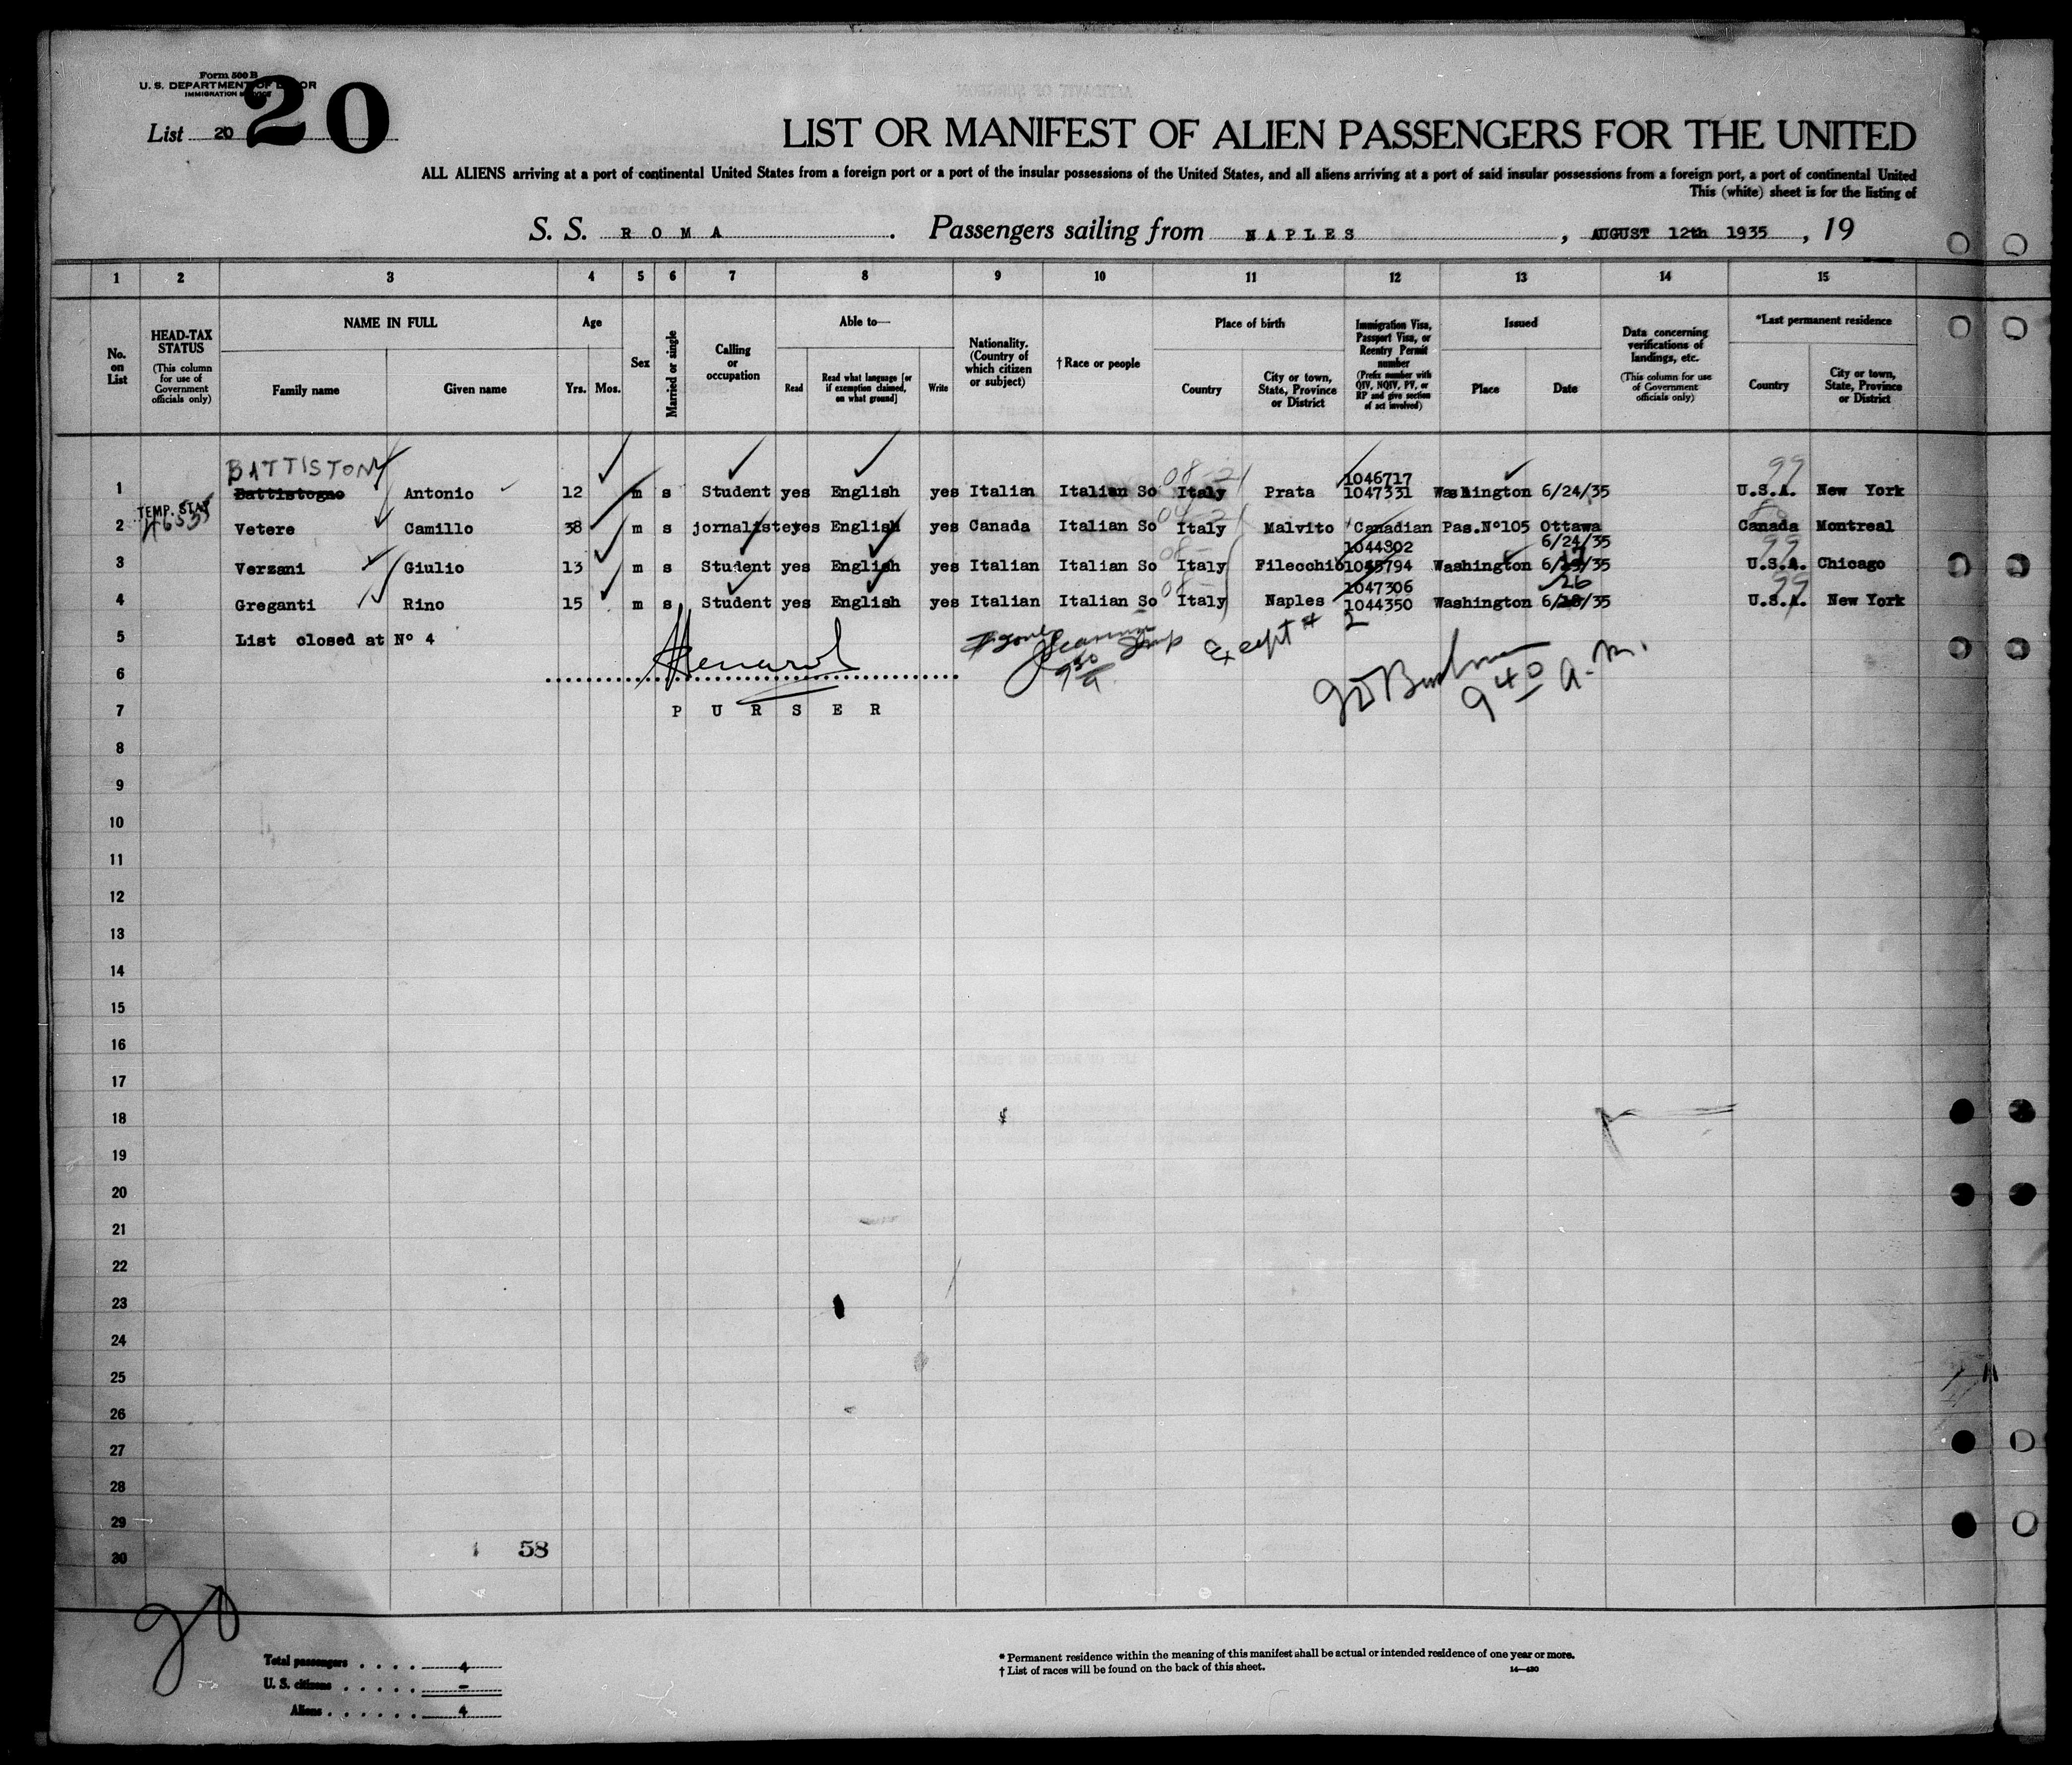 Form 500 B
U. S. DEPARTMENT OF LABOR
IMMIGRATION SERVICE
List 20
20
LIST OR MANIFEST OF ALIEN PASSENGERS FOR THE UNITED
ALL ALIENS arriving at a port of continental United States from a foreign port or a port of the insular possessions of the United States, and all aliens arriving at a port of said insular possessions from a foreign port, a port of continental United
This (white) sheet is for the listing of
S. S. ROMA. Passengers sailing from NAPLES, AUGUST 12th 1935, 19
1 2 3 4 5 6 7 8 9 10 11 12 13 14 15
No. on List
HEAD-TAX STATUS (This column for use of Government officials only)
NAME IN FULL
Family name Given name
Age
Yrs. Mos.
Sex
Married or single
Calling or occupation
Able to—
Read Read what language [or if exemption claimed, on what ground] Write
Nationality. (Country of which citizen or subject)
† Race or people
Place of birth
Country City or town, State, Province or District
Immigration Visa, Passport Visa, or Reentry Permit number (Prefix number with QIV, NQIV, PV, or RP and give section of act involved)
Issued
Place Date
Data concerning verifications of landings, etc. (This column for use of Government officials only)
*Last permanent residence
Country City or town, State, Province or District
BATTISTONI
08-21 1046717 99
1 Battistogno Antonio 12 m s Student yes English yes Italian Italian So Italy Prata 1047331 Washington 6/24/35 U.S.A. New York
TEMP. STAY
2 Vetere Camillo 38 m s jornaliste yes English yes Canada Italian So Italy Malvito Canadian Pas.Nº105 Ottawa Canada Montreal
1044302 6/24/35 99
3 Verzani Giulio 13 m s Student yes English yes Italian Italian So Italy Filecchio 1045794 Washington U.S.A. Chicago
1047306 26 99
4 Greganti Rino 15 m s Student yes English yes Italian Italian So Italy Naples 1044350 Washington 6/18/35 U.S.A. New York
5 List closed at Nº 4
Except # 2
6
9 30
9 40 a.m.
7 PURSER
8
9
10
11
12
13
14
15
16
17
18
19
20
21
22
23
24
25
26
27
28
29
58
30
20
Total passengers . . . . 4
U. S. citizens . . . . . -
Aliens . . . . . . 4
* Permanent residence within the meaning of this manifest shall be actual or intended residence of one year or more.
† List of races will be found on the back of this sheet.
14—430